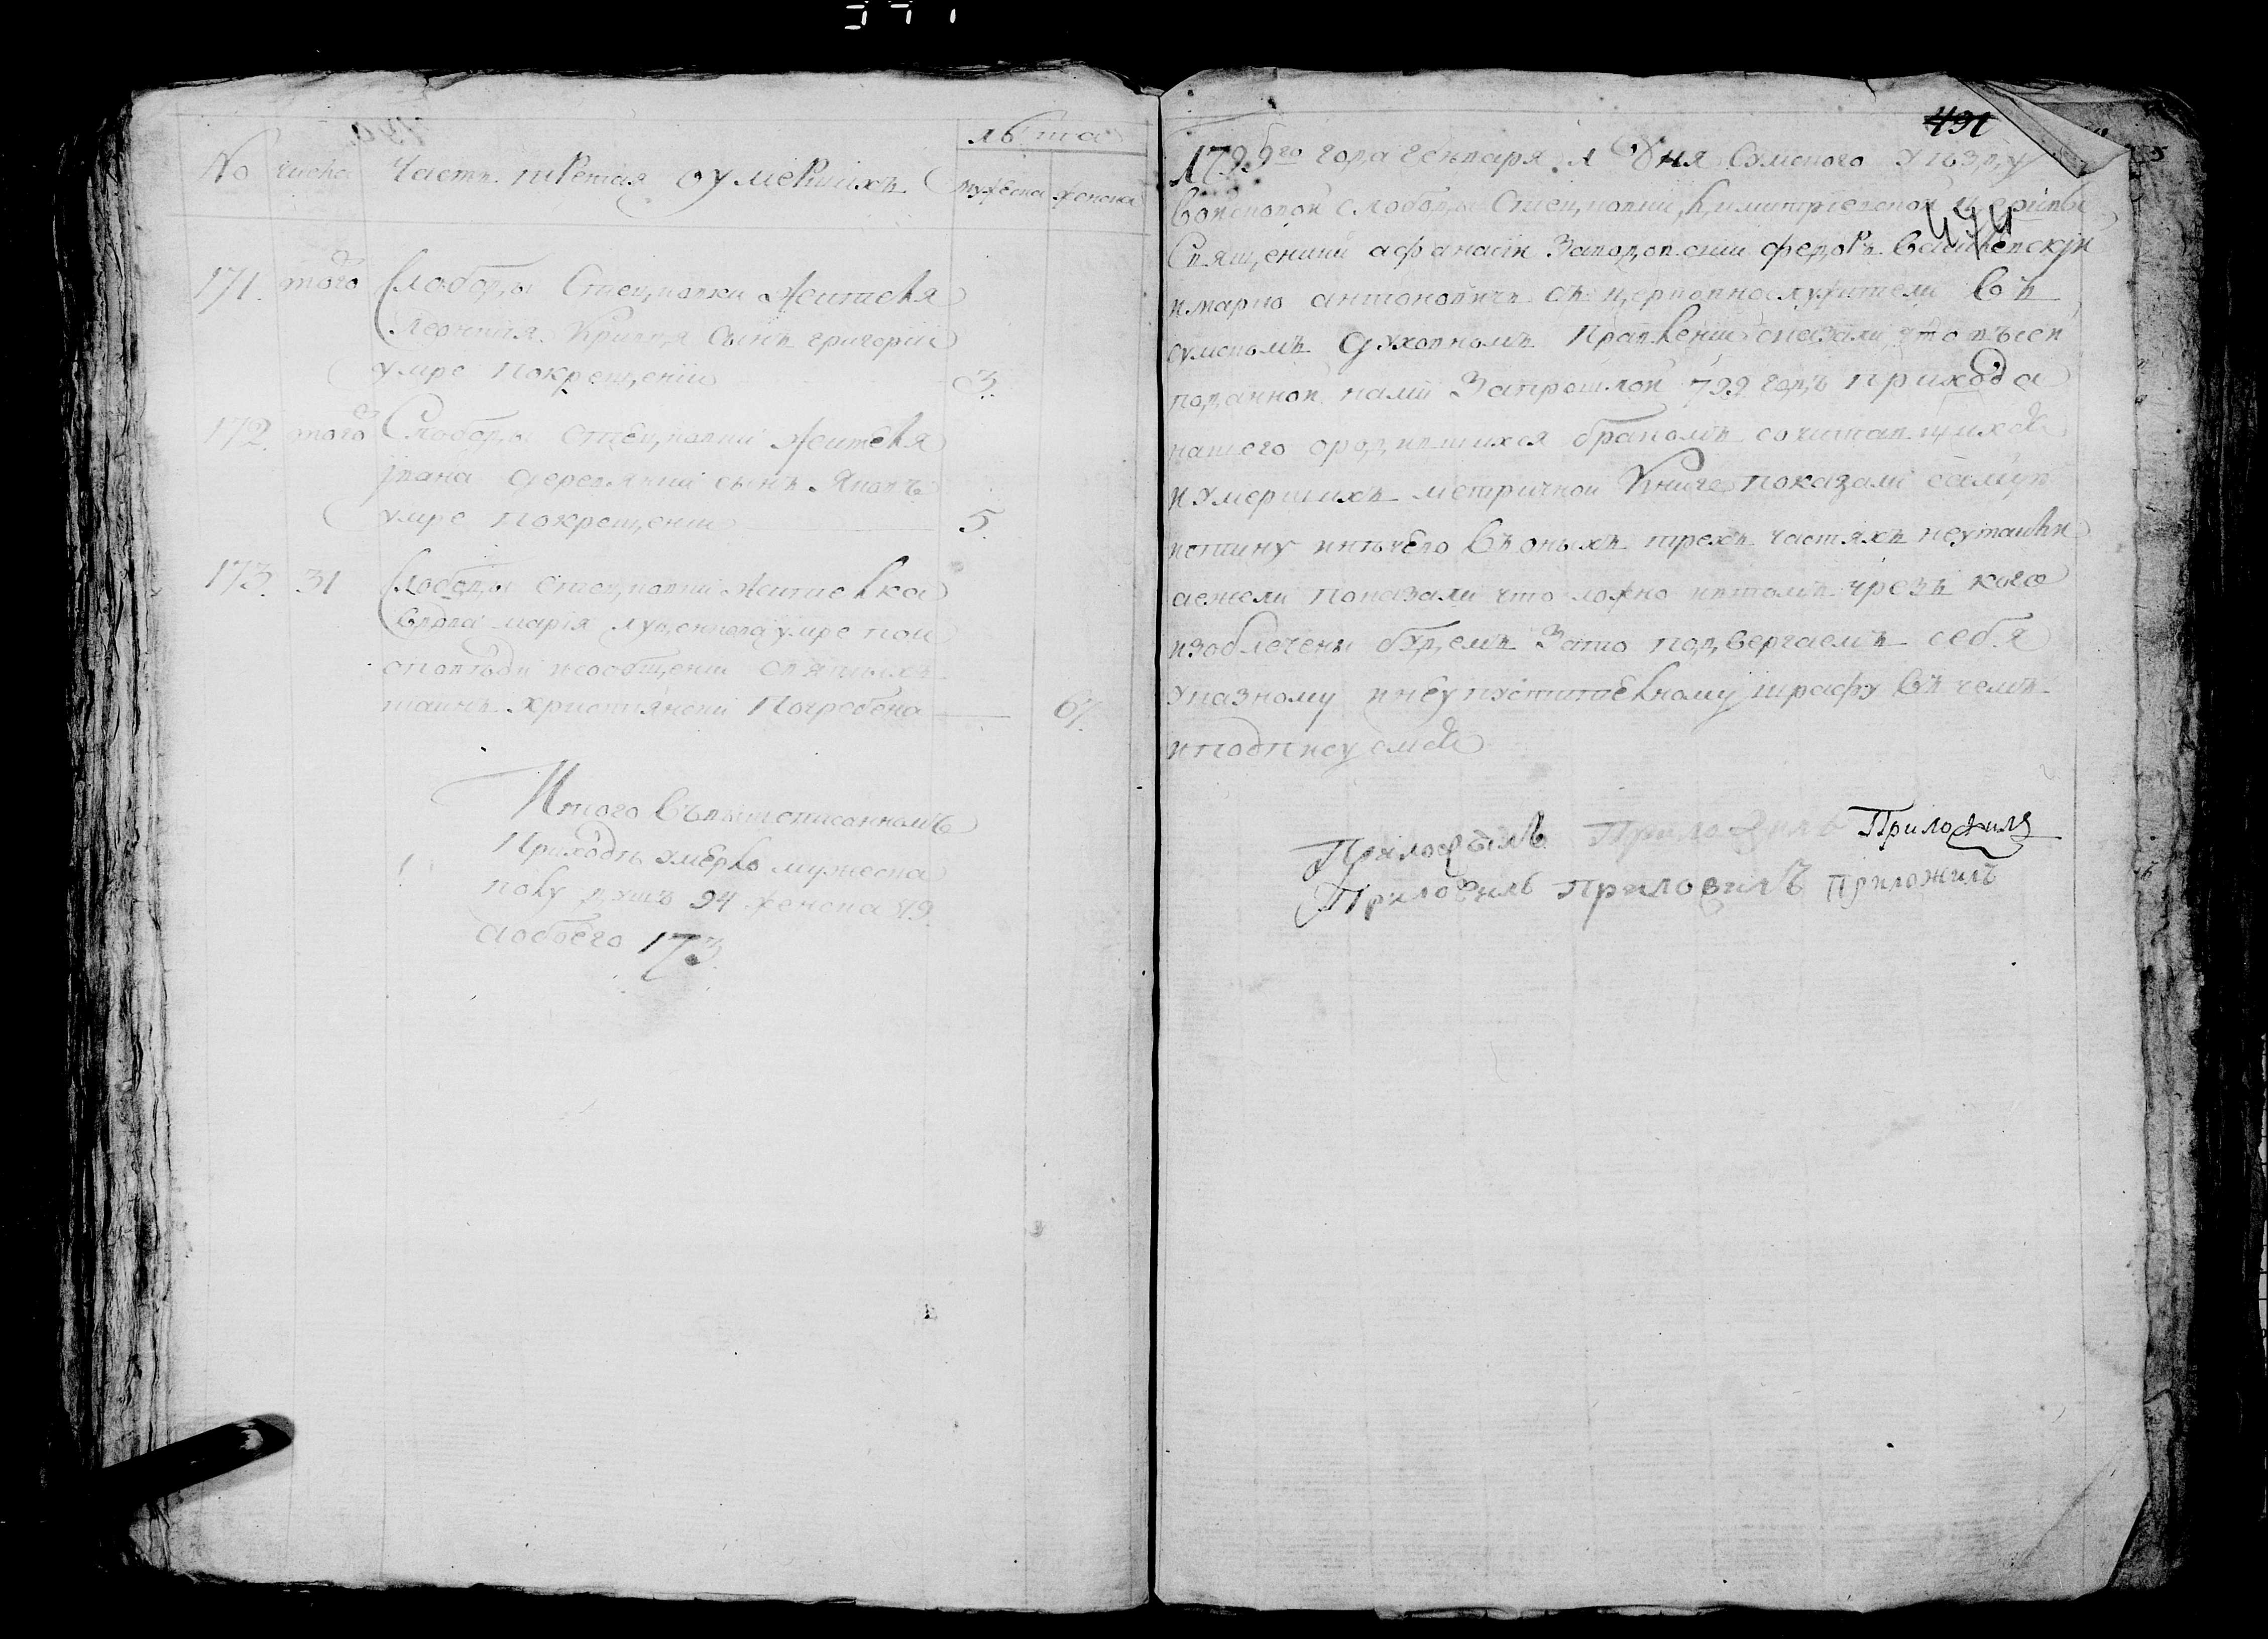 лѣта
№ числа Часть третая оумершихъ мужеска женска
171. того Слободы Стецковки жителя
Леонтия Кривця сынъ григорий
умре покрещении 3.
172. того Слободы Стецковки жителя
івана деревянки сынъ Яковъ
умре покрещении 5.
173. 31 Слободы Стецковки жителка
вдова марія луценкова умре пои
споведи исообщении святыхъ
таинъ християнски Погребена 67.
Итого въвышеписанномъ
Приходѣ умерло мужеска
полу душъ 94 женска 79
аобоего 173
491
474
года генваря дня Сумского уѣзду
войсковой слободы Стецковки димитриевской церкви
Священники афанасий федоръ
имарко антоновичъ съ церковнослужители въ
сумскомъ духовномъ Правлении сказали что въсей
поданной нами Запрошлой 799 годъ прихода
нашего ородившихся бракомъ сочитавшихся
иумершихъ метричной Книге показали самую
истину иничего въоныхъ трехъ частяхъ неутаили
аежели показали что ложно ивтомъ чрезъ кого
изобличены будемъ Зато подвергаемъ себя
указному инеупустителному штрафу въ чемъ
иподписуемся
Приложилъ Приложилъ Приложилъ
Приложилъ приложилъ приложилъ